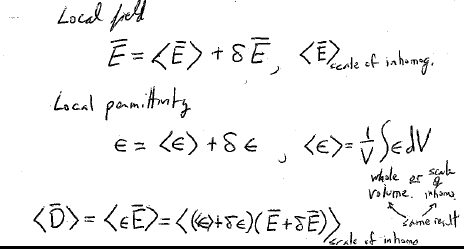 Local field
E̅ = <E̅> + δE̅, <E̅> scale of inhomog.
Local permittivity
ϵ = <ϵ> + δϵ, <ϵ> = 1/V ∫ϵdV
whole or scale of
volume. inhomo.
same result
<D̅> = <ϵE̅> = <(<ϵ>+δϵ)(E̅+δE̅)> scale of inhomo